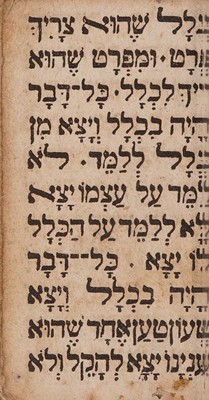 כְּלָל שֶׁהוּא צָרִיךְ
פְרָט · וּמִפְּרָט שֶׁהוּא
רִיךְ לִכְלָל. כָּל־דָּבָר
הָיָה בִכְלָל וְיָצָא מִן
כְּלָל לְלַמֵּד. לֹא
לַמֵּד עַל עַצְמוֹ יָצָא
לָּא לְלַמֵּד עַל הַכְּלָל
לּוֹ יָצָא . כָּל־דָּבָר
הָיָה בִכְלָל וְיָצָא
טְעוֹן טַעַן אֶחָד שֶׁהוּא
עִנְיָנוֹ יָצָא לְהָקֵל וְלֹא